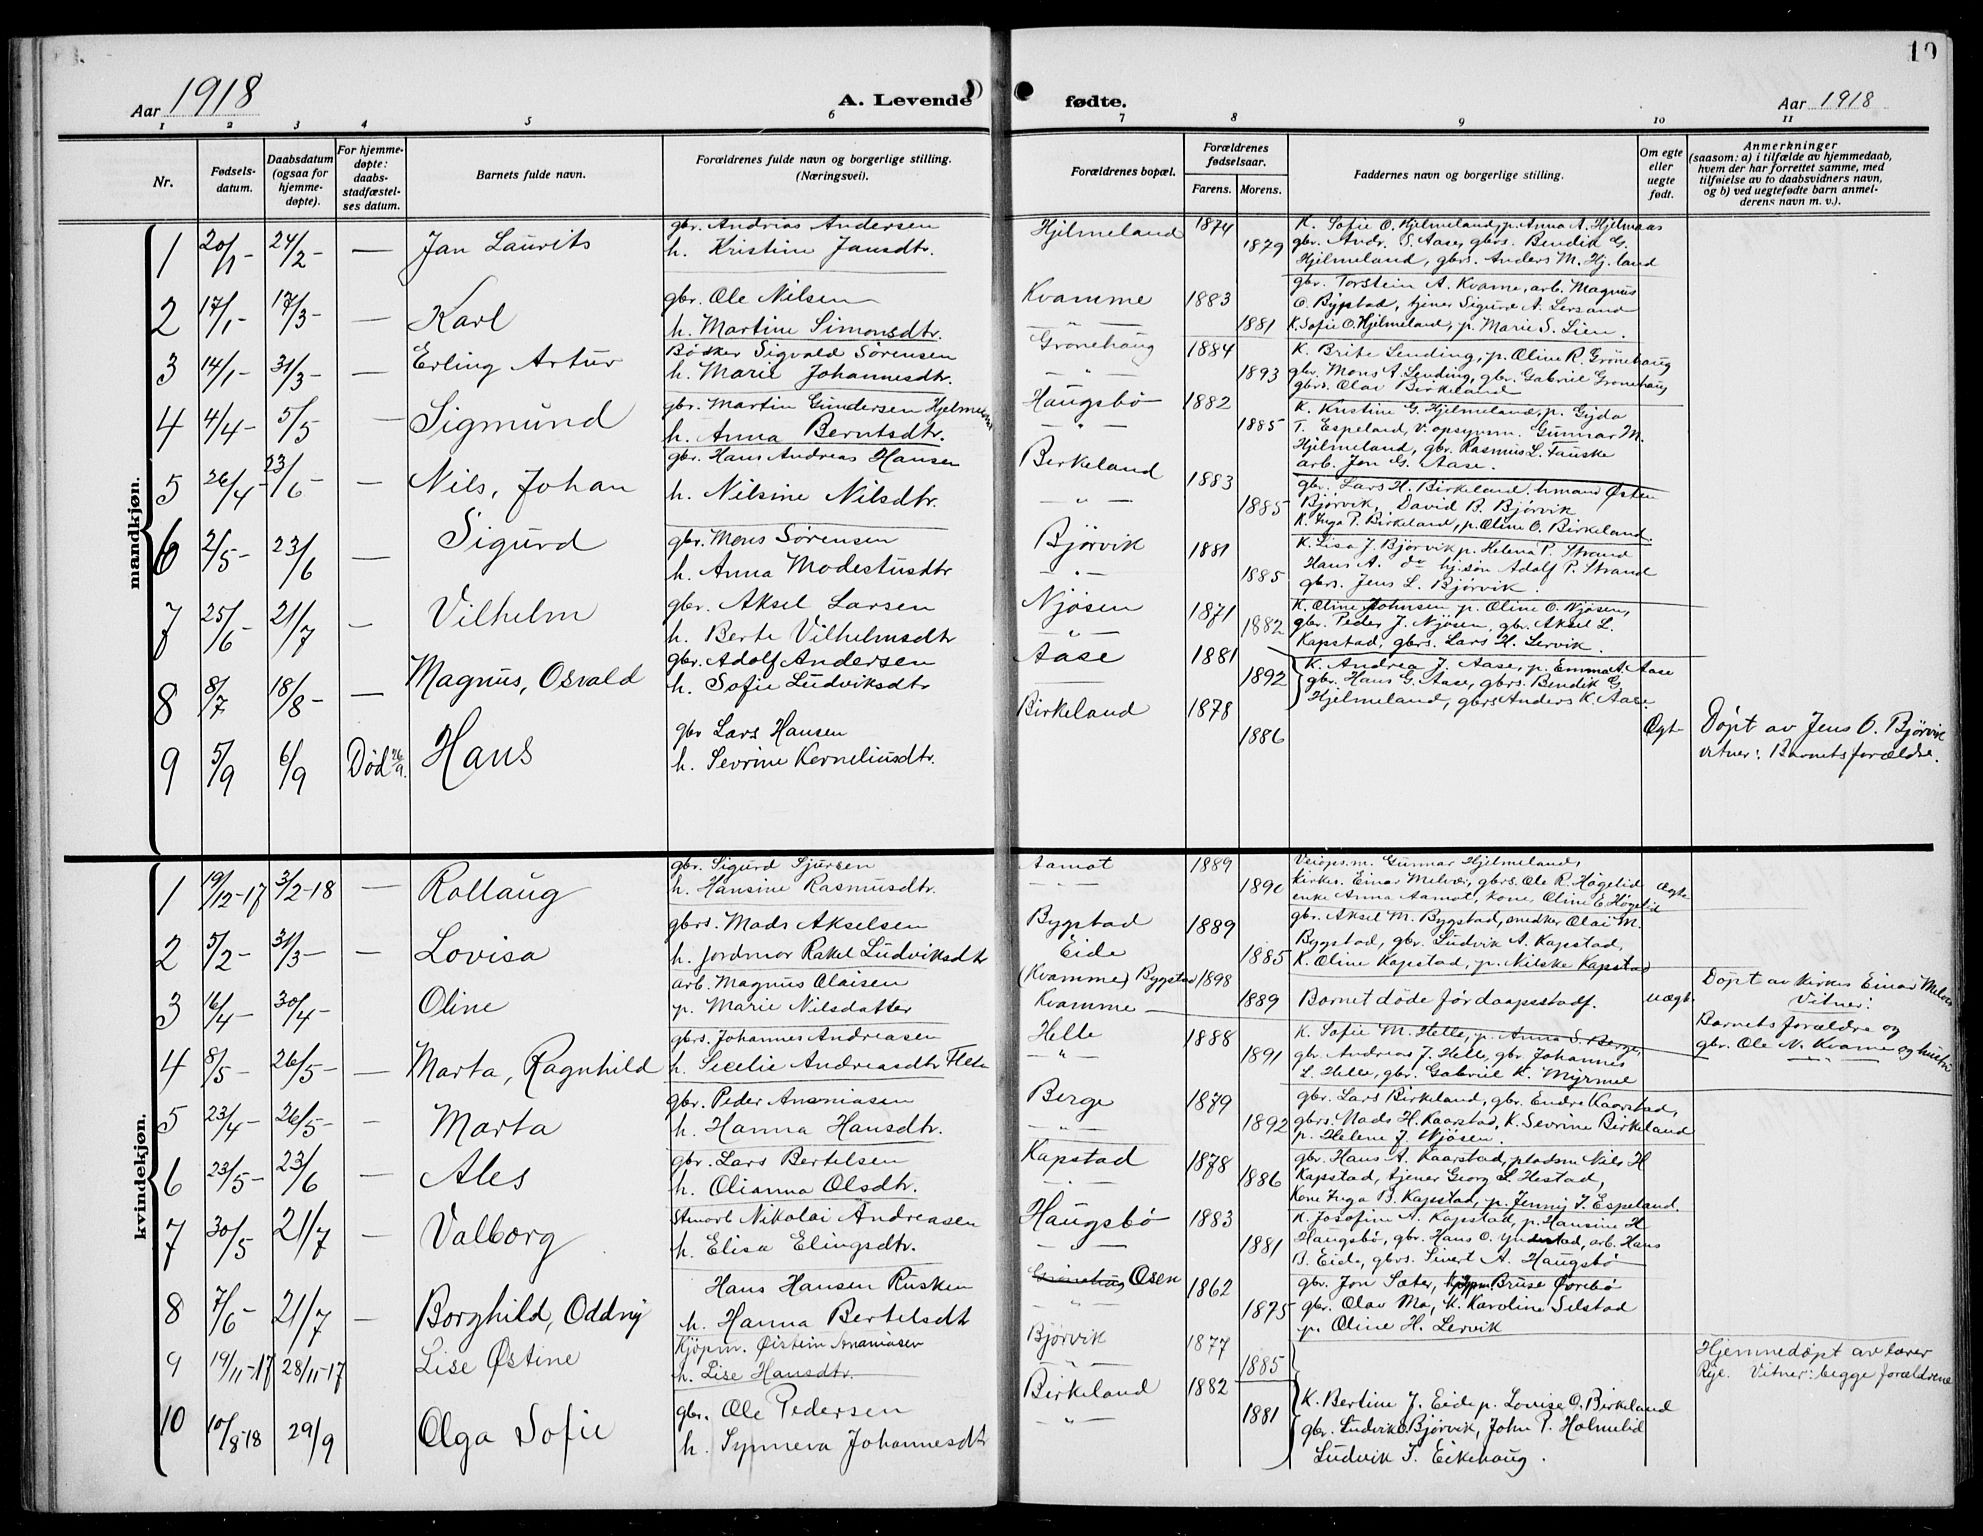 10
Aar 1918
A. Levende fødte.
Aar 1918
1 2 3 4 5 6 7 8 9 10 11
Nr.
Fødsels-
datum.
Daabsdatum
(ogsaa for
hjemme-
døpte).
For hjemme-
døpte:
daabs-
stadfæstel-
ses datum.
Barnets fulde navn.
Forældrenes fulde navn og borgerlige stilling.
(Næringsvei).
Forældrenes bopæl.
Forældrenes
fødselsaar.
Farens. Morens.
Faddernes navn og borgerlige stilling.
Om egte
eller
uegte
født.
Anmerkninger
(saasom: a) i tilfælde av hjemmedaab,
hvem der har forrettet samme, med
tilføielse av to daabsvidners navn,
og b) ved uegtefødte barn anmel-
derens navn m. v.).
mandkjøn.
1 20/1- 24/2- — Jan Laurits
gbr. Andrias Andersen
h. Kristine Jansdtr.
Hjelmeland 1874 1879
K. Sofie O. Hjelmeland, p. Anna A. Hjelmaas
gbr. Andr. S. Aase, gbrs. Bendik G.
Hjelmeland, gbrs. Anders M. Hj.land
2 17/1- 17/3- — Karl
gbr. Ole Nilsen
h. Martine Simonsdtr.
Kvamme 1883 1881
gbr. Torstein A. Kvame, arb. Magnus
O. Bygstad, tjener Sigurd A. Lersand
K. Sofie O. Hjelmeland, p. Marie S. Lien.
3 14/1- 31/3- — Erling Artur
Bødker Sigvald Sørensen
h. Marie Johannesdtr.
Grønehaug 1884 1893
K. Brite Lending, p. Oline R. Grønehaug
gbr. Mons A. Lending, gbr. Gabriel Grønehaug
gbrs. Olai Birkeland
4 4/4- 5/5 — Sigmund
gbr. Martin Gundersen Hjelmeland
h. Anna Berntsdtr.
Haugsbø 1882 1885
K. Kristine G. Hjelmeland, p. Gyda
T. Espeland, v. opsynsm. Gunnar M.
Hjelmeland, gbr. Rasmus L. Fauske
arb. Jon G. Aase.
5 26/4- 23/6- — Nils, Johan
gbr. Hans Andreas Hansen
h. Nilsine Nilsdtr.
Birkeland 1883 1885
gbr. Lars H. Birkeland, hmand Østen
Bjørvik, David B. Bjørvik
K. Inga P. Birkeland, p. Oline O. Birkeland.
6 2/5- 23/6 — Sigurd
gbr. Mons Sørensen
h. Anna Modestusdtr
Bjørvik 1881 1885
K. Lisa J. Bjørvik p. Helena P. Strand
Hans A. do hj.søn Adolf P. Strand
gbrs. Jens L. Bjørvik.
7 25/6- 21/7 — Vilhelm
gbr. Aksel Larsen
h. Berte Vilhelmsdtr
Njøsen 1871 1882
K. Oline Johnsen p. Oline O. Njøsen,
gbr. Peder J. Njøsen, gbr. Aksel L.
Kapstad, gbrs. Lars H. Lervik.
8 8/7 18/8- — Magnus, Osvald
gbr. Adolf Andersen
h. Sofie Ludviksdtr
Aase 1881 1892
K. Andrea J. Aase, p. Emma A. Aase
gbr. Hans G. Aase, gbrs. Bendik G.
Hjelmeland, gbrs Anders K. Aase.
9 5/9 6/9 Død 26/9. Hans
gbr Lars Hansen
h. Sevrine Korneliusdtr.
Birkeland 1878 1886
Øgte
Døpt av Jens O. Bjørvik
vitner: Barnets forældre.
kvindekjøn.
1 19/12-17 3/2-18 — Rollaug
gbr. Sigurd Sjursen
h. Hansine Rasmusdtr.
Aamot 1889 1890
Veiops.m. Gunnar Hjelmeland,
kirkes. Einar Melvær, gbrs. Ole R. Høgelid
enke Anna Aamot, kone Oline E Høgelid
Øgte
2 5/2- 31/3- — Lovisa
gbrs. Mads Akselsen
h. Jordmor Rakel Ludviksdtr
Bygstad
Eide
1889 1885
gbr. Aksel M. Bygstad, snedker Olai M.
Bygstad, gbr. Ludvik A. Kapstad,
K. Oline Kapstad, p. Nilske Kapstad
3 16/4- 30/4- Oline
arb. Magnus Olaisen
p. Marie Nilsdatter
(Kvamme) Bygstad 1898
Kvamme 1889
Barnet døde før daapsstadf.
uegte
Døpt av kirkes Einar Melvær
Vitner:
Barnets forældre og
gbr. Ole N. Kvame og hustru
4 8/5- 26/5- — Marta, Ragnhild
gbrs. Johannes Andreasen
h. Secelie Andreasdtr Flete
Helle 1888 1891
K. Sofie M. Helle, p. Anna S. Berge,
gbr. Andreas J. Helle, gbr. Johannes
L. Helle, gbr. Gabriel K. Myrmel
5 23/4- 26/5- — Marta
gbr. Peder Ananiasen
h. Hanna Hansdtr.
Berge 1879 1892
gbr. Lars Birkeland, gbr. Endre Kaarstad,
gbrs. Mads H. Kaarstad, K. Sevrine Birkeland
p. Helene J. Njøsen.
6 23/5- 23/6 — Ales
gbr. Lars Bertelsen
h. Olianna Olsdtr.
Kapstad 1878 1886
gbr. Hans A. Kaarstad, pladsm Nils H
Kapstad, tjener Georg L. Hestad,
Kone Inga B. Kapstad, p. Jenny I. Espeland.
7 30/5 21/7 — Valborg
Stmarb Nikolai Andreasen
h. Elisa Elingsdtr.
Haugsbø 1883 1881
K. Josofine A. Kapstad, p. Hansine H
Haugsbø, gbr. Hans O. Yndestad, arb. Hans
B. Eide, gbrs. Sivert A. Haugsbø
8 7/6- 21/7 — Borghild, Oddny
Hans Hansen Rusken
h. Hanna Bertelsdtr
Grønehaug Osen 1862 1875
gbr. Jon Sæter, Bruse Øvrebø
gbr. Olav Mo, K. Karoline Silstad
p. Oline H. Lervik
9 19/11-17 28/11-17 Lise Østine
Kjøpm. Øistein Ananiasen
h. Lise Hansdtr.
Bjørvik 1877 1885
Hjemmedøpt av lærer
Rye. Vitner: begge forældrene
10 10/8-18 29/9 Olga Sofie
gbr. Ole Pedersen
h. Synneva Johannesdtr
Birkeland 1882 1881
K. Bertine J. Eide p. Lovise O. Birkeland
gbr. Ludvik Bjørvik, John P. Holmelid
Ludvik J. Eikehaug.